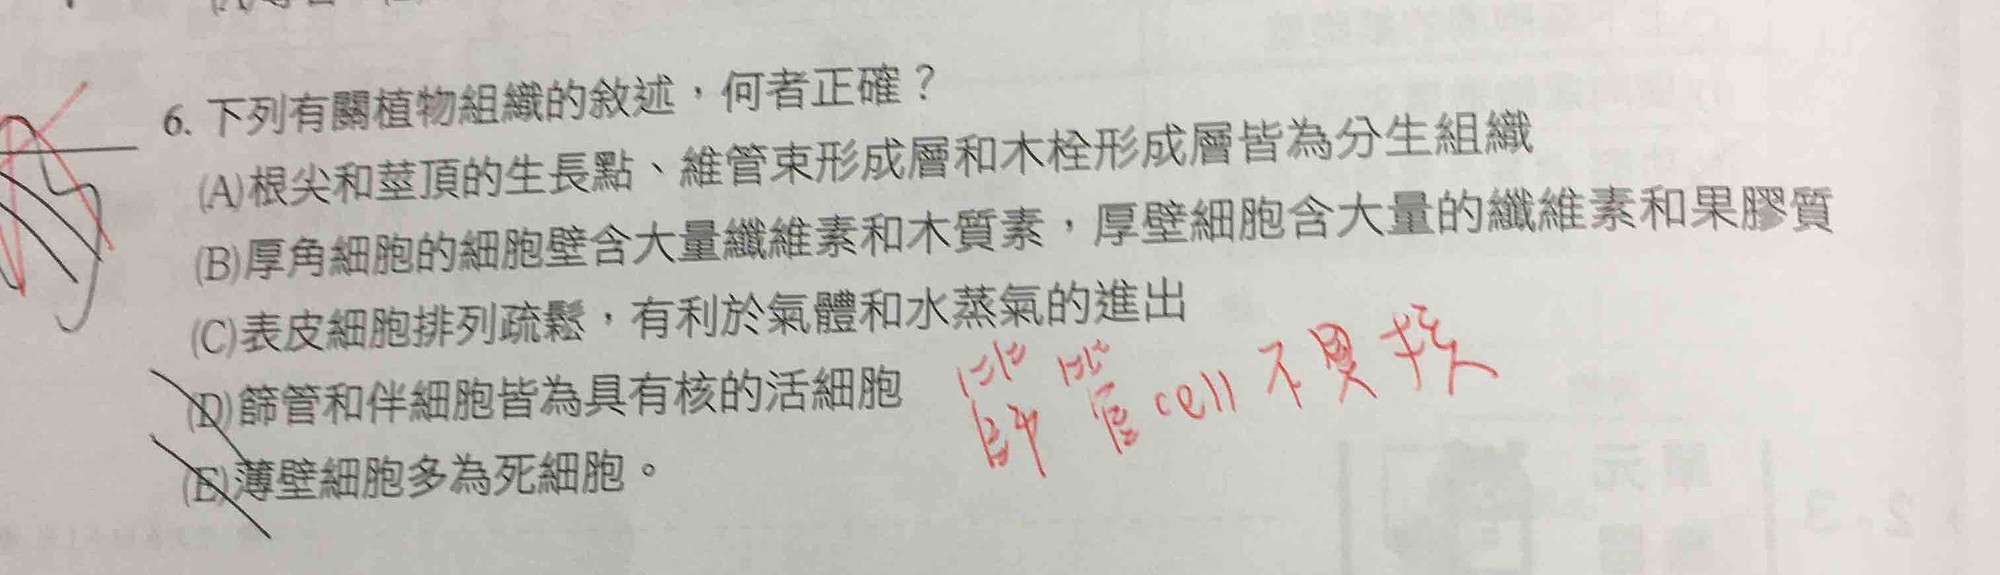 6. 下列有關植物組織的敘述，何者正確？
(A)根尖和莖頂的生長點、維管束形成層和木栓形成層皆為分生組織
(B)厚角細胞的細胞壁含大量纖維素和木質素，厚壁細胞含大量的纖維素和果膠質
(C)表皮細胞排列疏鬆，有利於氣體和水蒸氣的進出
(D)篩管和伴細胞皆為具有核的活細胞
篩管cell不具核
(E)薄壁細胞多為死細胞。